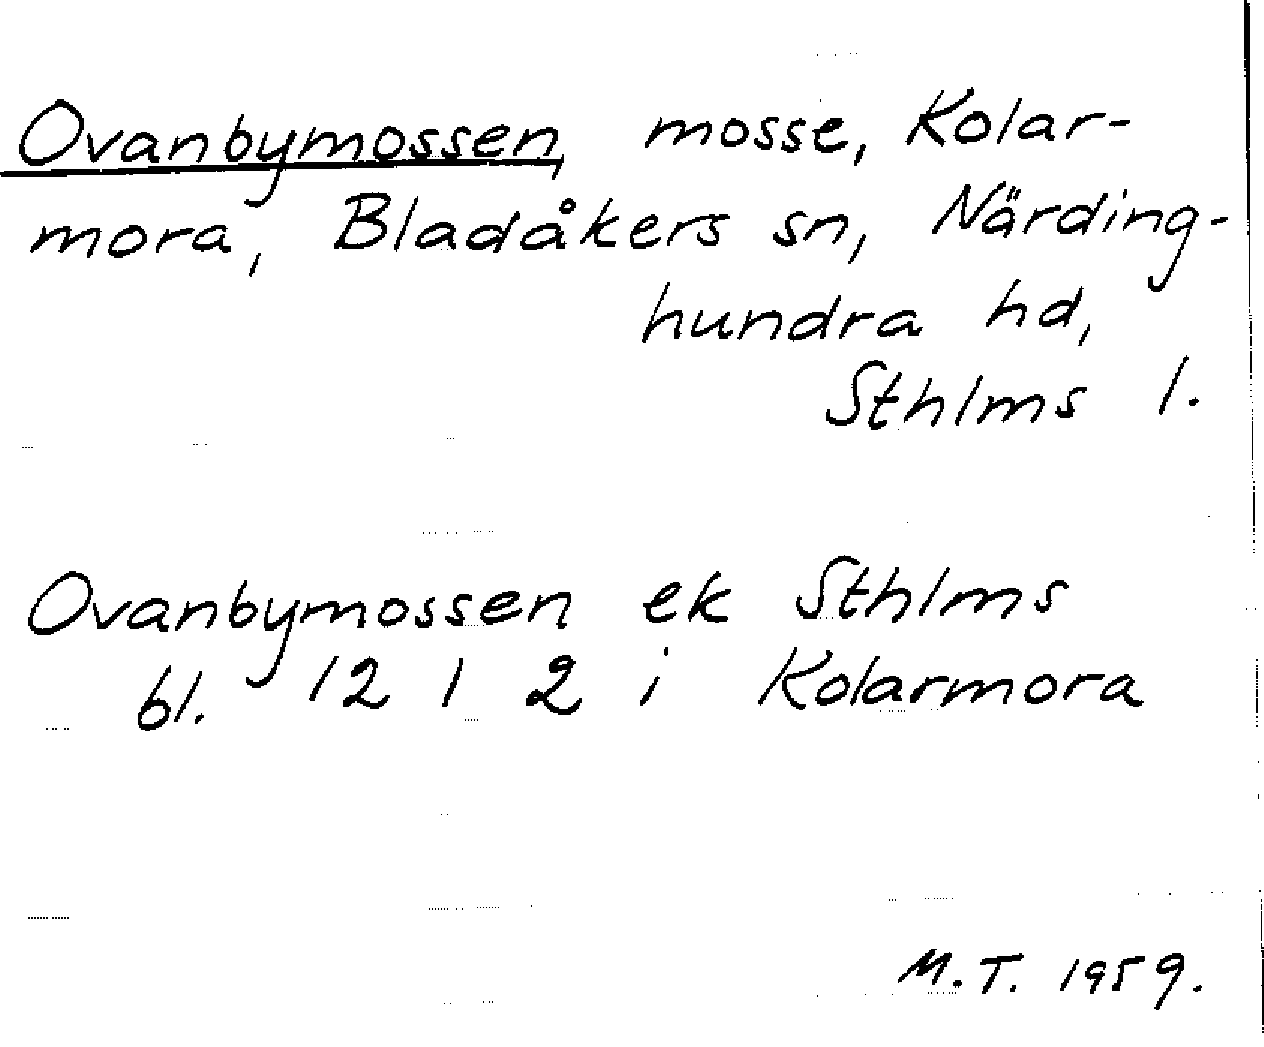 Ovanbymossen, mosse, Kolar-
mora, Bladåkers sn, Närding-
hundra hd,
Sthlms l.
Ovanbymossen ek Sthlms
bl. 12 1 2 i Kolarmora
M.T. 1959.